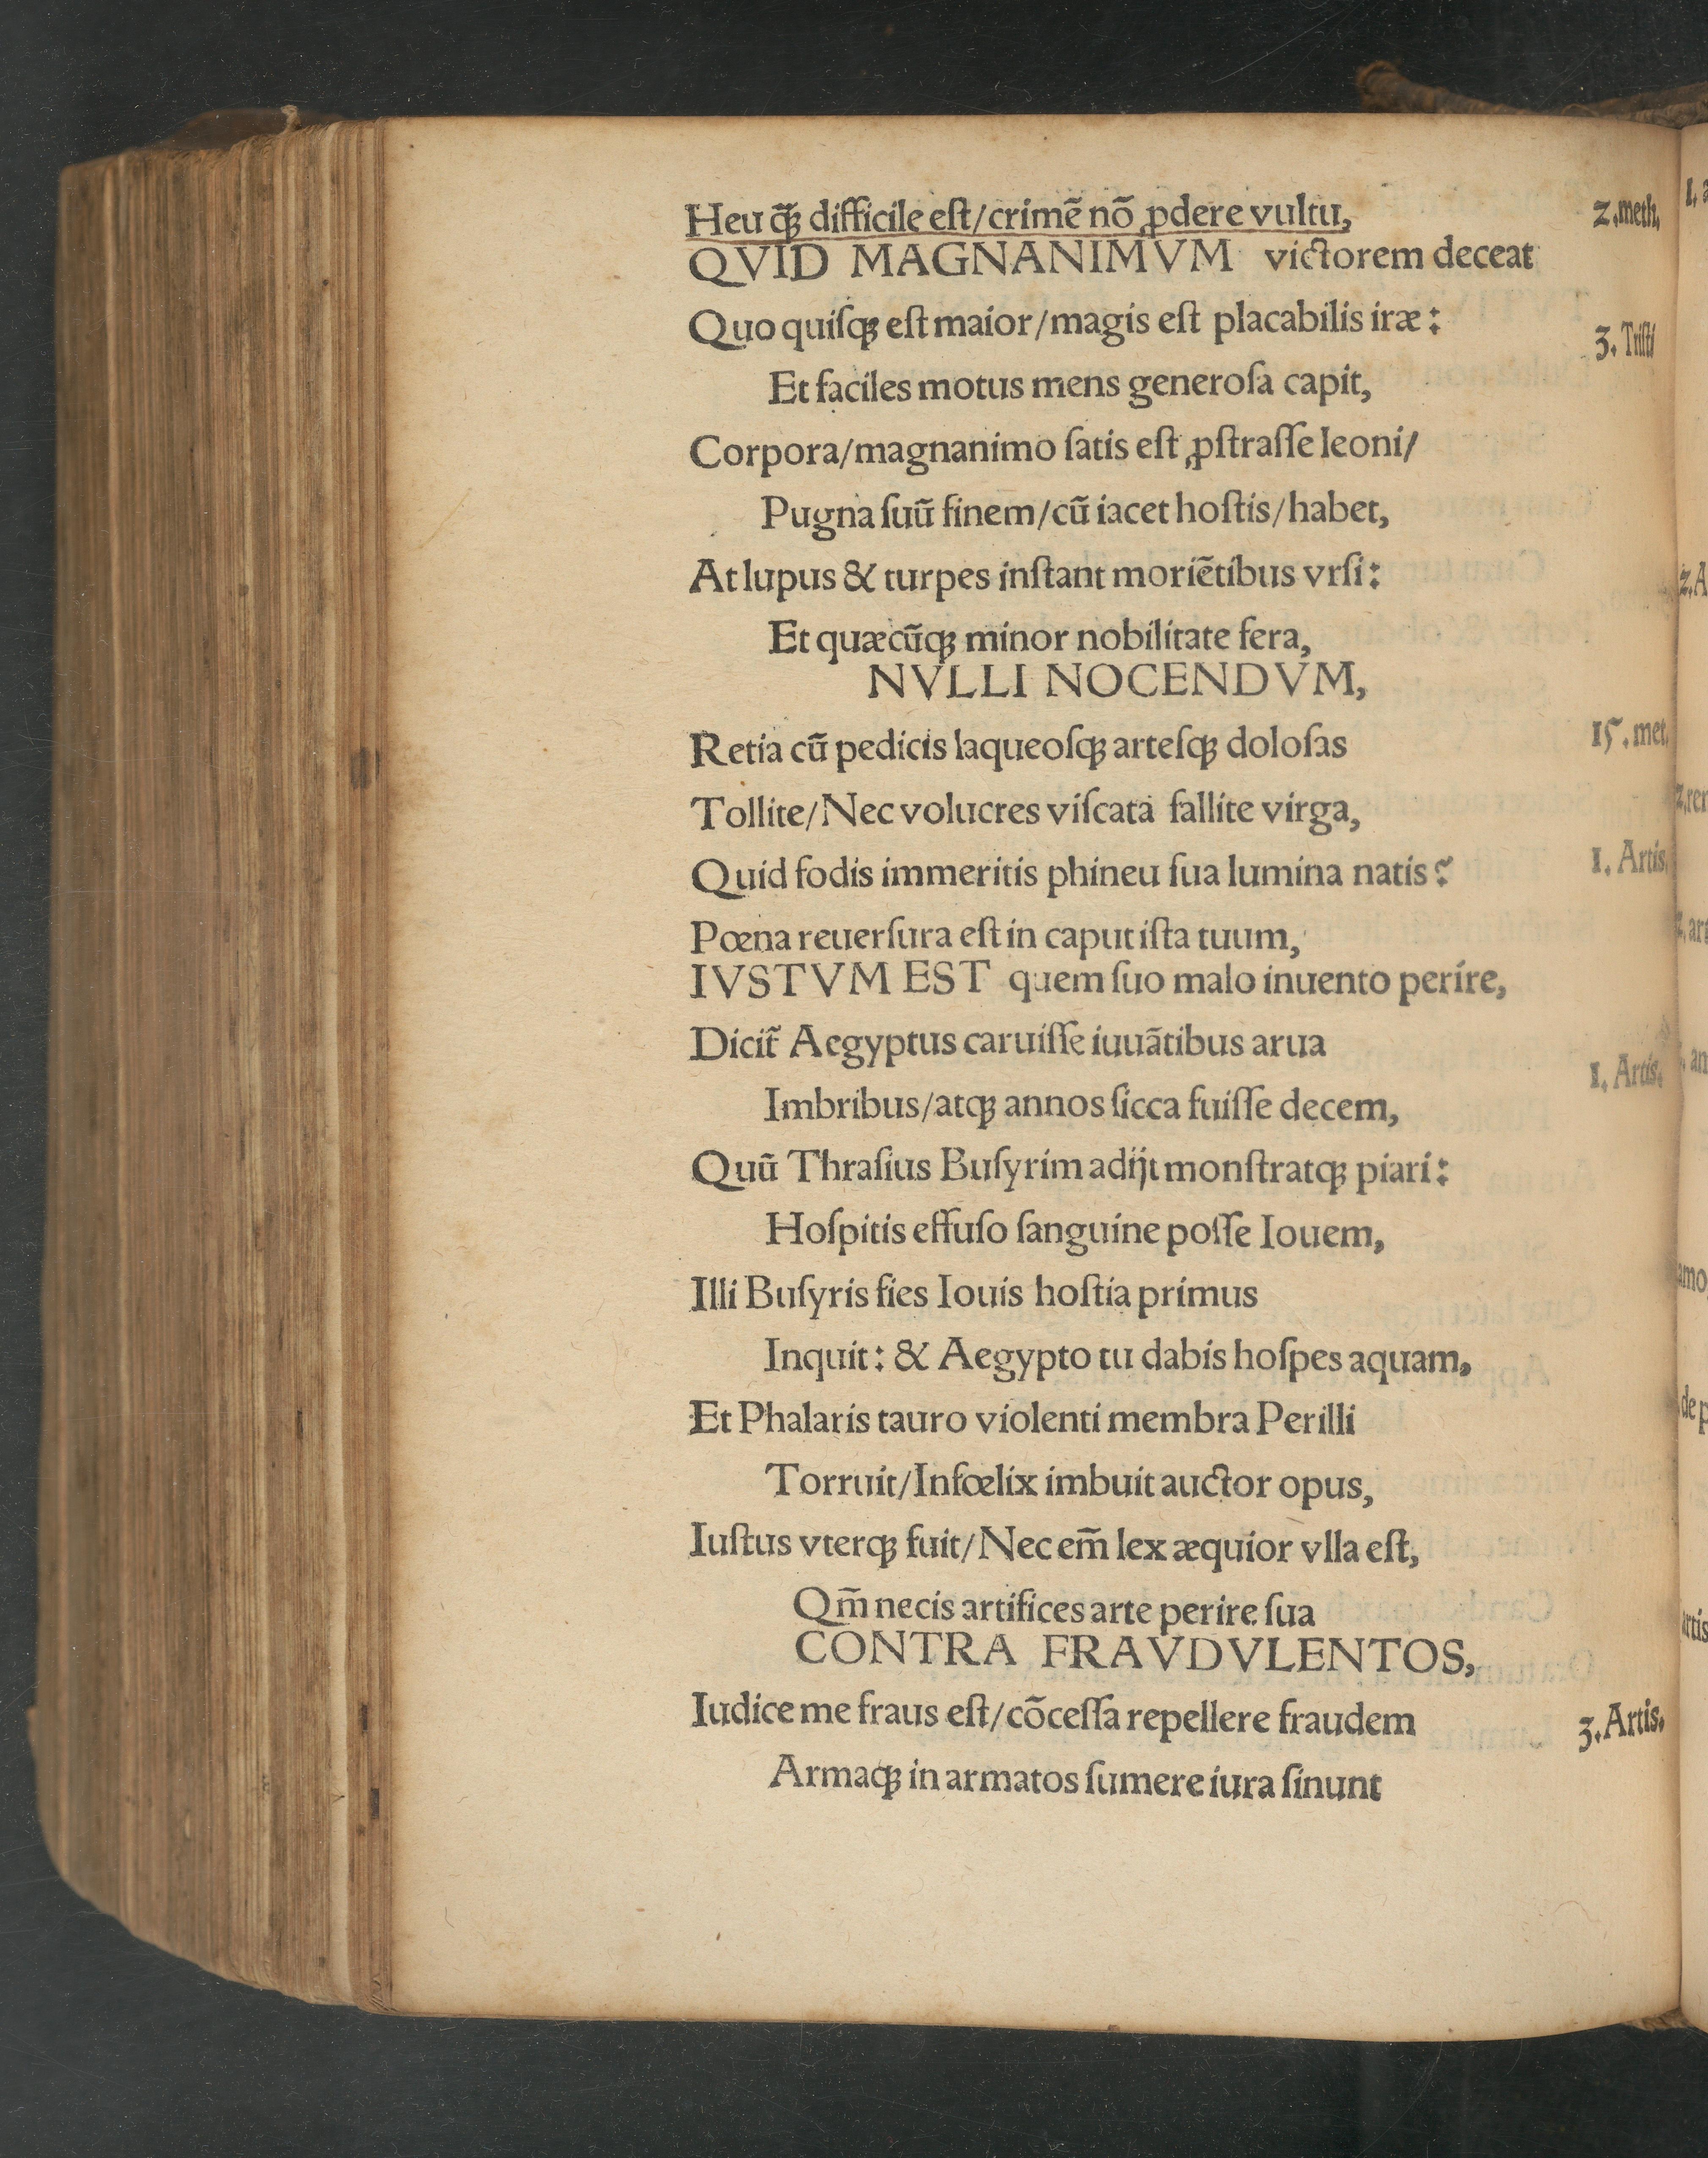 Heu q̃ꝫ difficile eſt/crimẽ nõ ꝓdere vultu, 2.meth,
QVID MAGNANIMVM victorem deceat
Quo quiſqꝫ eſt maior/magis eſt placabilis iræ: 3. Triſti
Et faciles motus mens generoſa capit,
Corpora/magnanimo ſatis eſt ꝓſtraſſe leoni/
Pugna ſuũ finem/cũ iacet hoſtis/habet,
At lupus & turpes inſtant moriẽtibus vrſi:
Et quæcũqꝫ minor nobilitate fera,
NVLLI NOCENDVM,
Retia cũ pedicis laqueoſqꝫ arteſqꝫ doloſas 15. met.
Tollite/Nec volucres viſcata fallite virga,
Quid fodis immeritis phineu ſua lumina natis? 1. Artis.
Pœna reuerſura eſt in caput iſta tuum,
IVSTVM EST quem ſuo malo inuento perire,
Dicit̃ Aegyptus caruiſſe iuuãtibus arua 1. Artis.
Imbribus/atqꝫ annos ſicca fuiſſe decem,
Quũ Thraſius Buſyrim adijt monſtratqꝫ piari:
Hoſpitis effuſo ſanguine poſſe Iouem,
Illi Buſyris fies Iouis hoſtia primus
Inquit: & Aegypto tu dabis hoſpes aquam,
Et Phalaris tauro violenti membra Perilli
Torruit/Infœlix imbuit auctor opus,
Iuſtus vterqꝫ fuit/Nec em̃ lex æquior vlla eſt,
Qm̃ necis artifices arte perire ſua
CONTRA FRAVDVLENTOS,
Iudice me fraus eſt/cõceſſa repellere fraudem 3. Artis.
Armaqꝫ in armatos ſumere iura ſinunt